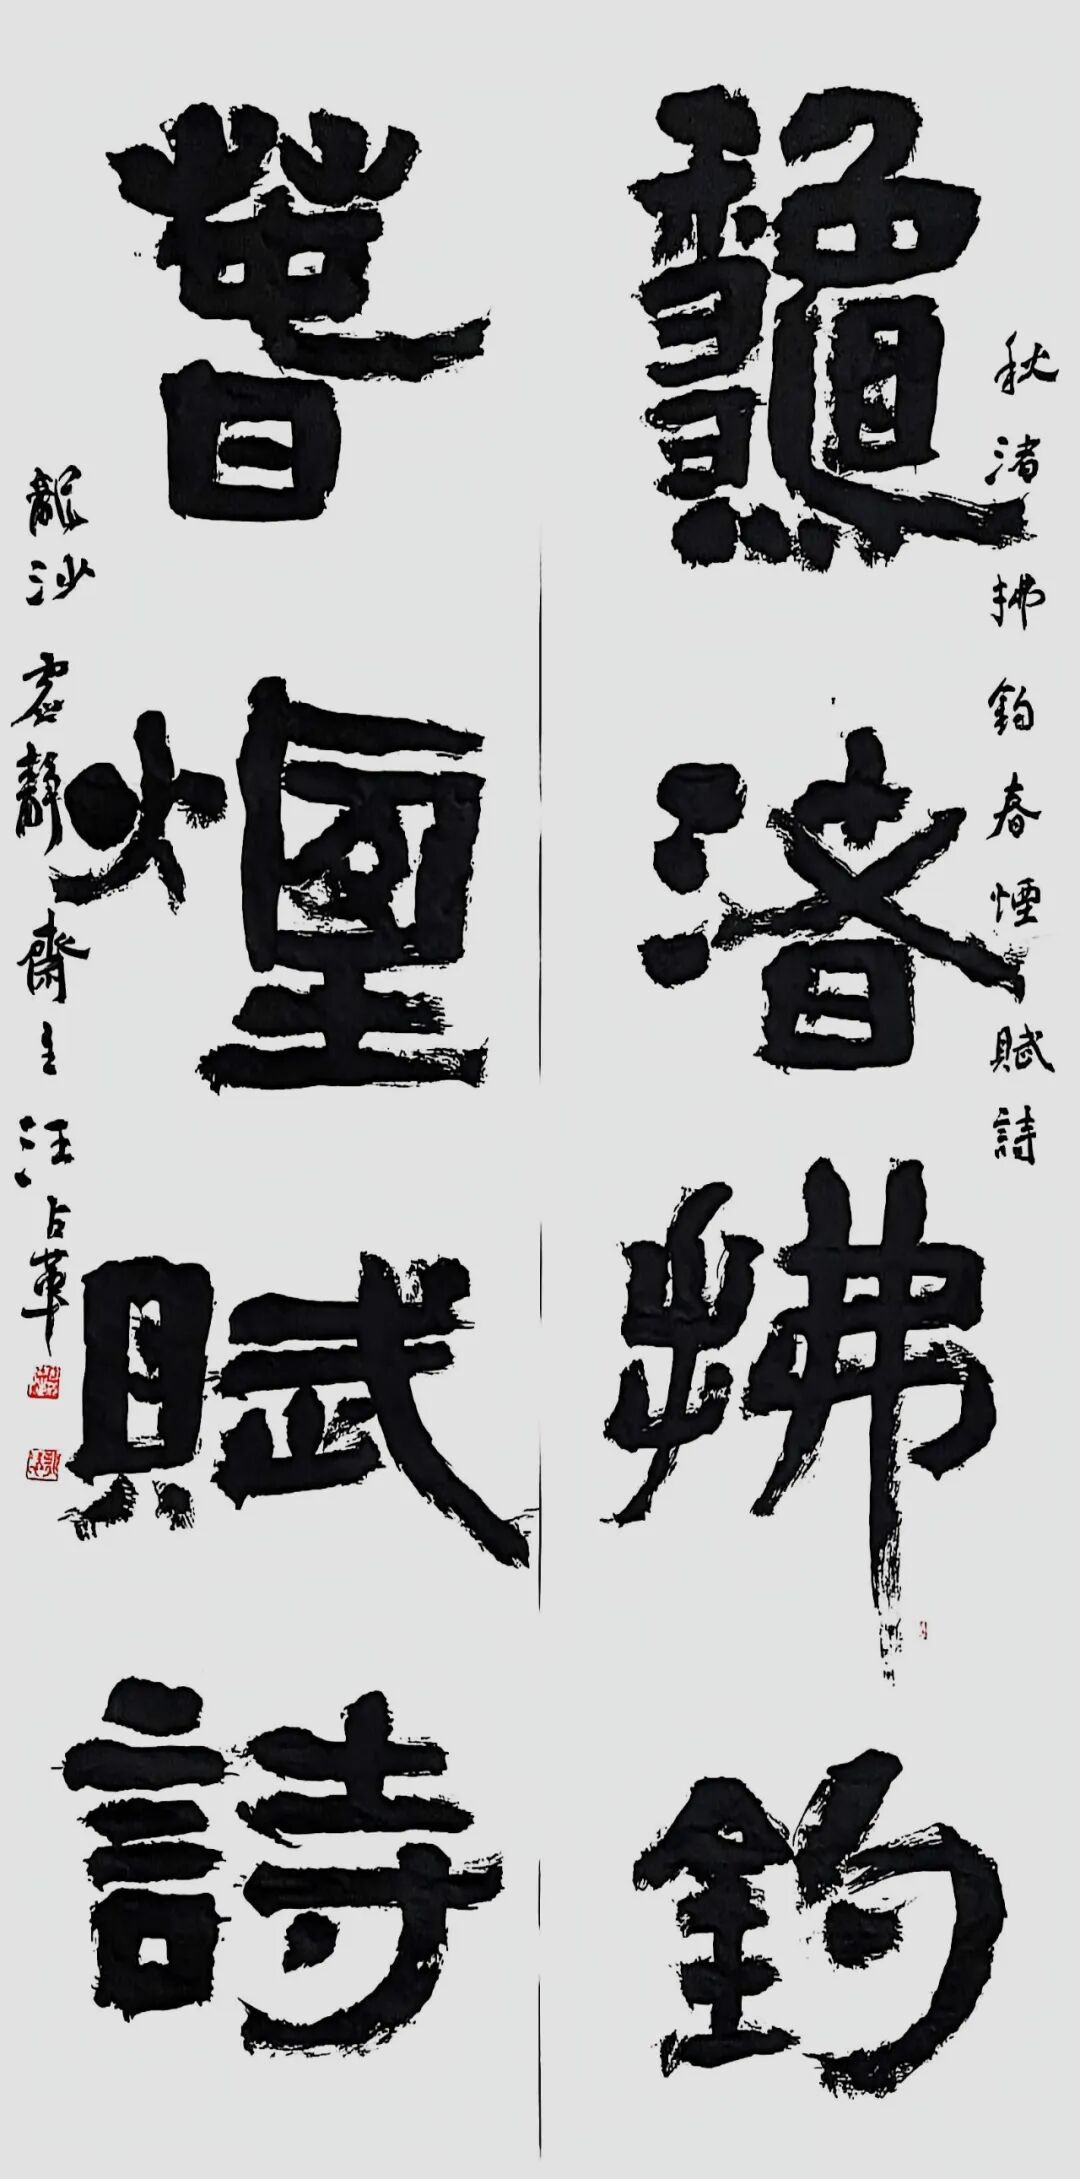 秋渚拂釣春煙賦詩
龝渚拂釣
萅煙賦詩
龍沙虛靜齋主汪占革